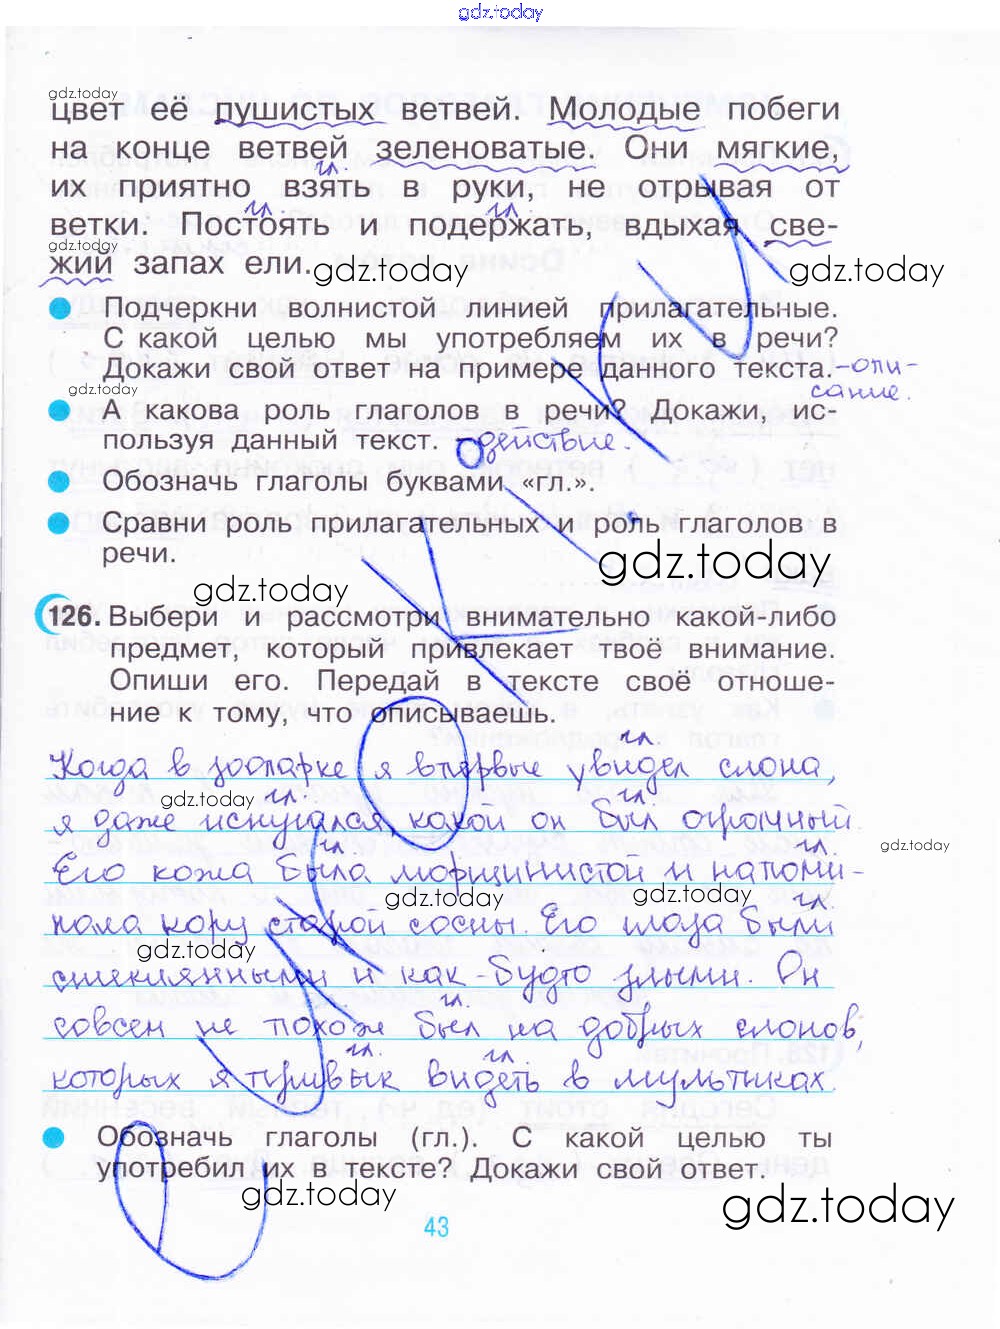 gdz.today
gdz.today
цвет её пушистых ветвей. Молодые побеги
на конце ветвей зеленоватые. Они мягкие,
гл.
их приятно взять в руки, не отрывая от
гл. гл.
ветки. Постоять и подержать, вдыхая све-
gdz.today
жий запах ели. gdz.today gdz.today
Подчеркни волнистой линией прилагательные.
С какой целью мы употребляем их в речи?
Докажи свой ответ на примере данного текста. -опи-
gdz.today сание.
А какова роль глаголов в речи? Докажи, ис-
пользуя данный текст. - действие.
Обозначь глаголы буквами «гл.».
Сравни роль прилагательных и роль глаголов в
речи.
gdz.today
gdz.today
126. Выбери и рассмотри внимательно какой-либо
предмет, который привлекает твоё внимание.
Опиши его. Передай в тексте своё отноше-
ние к тому, что описываешь.
гл.
Когда в зоопарке я впервые увидел слона,
gdz.today гл. гл.
я даже испугался, какой он был огромный.
гл. гл. gdz.today
Его кожа была морщинистой и напоми-
gdz.today gdz.today гл.
нала кору старой сосны. Его глаза были
gdz.today
стеклянными и как-будто злыми. Он
гл.
совсем не похож был на добрых слонов,
гл. гл.
которых я привык видеть в мультиках.
Обозначь глаголы (гл.). С какой целью ты
употребил их в тексте? Докажи свой ответ.
gdz.today gdz.today
43